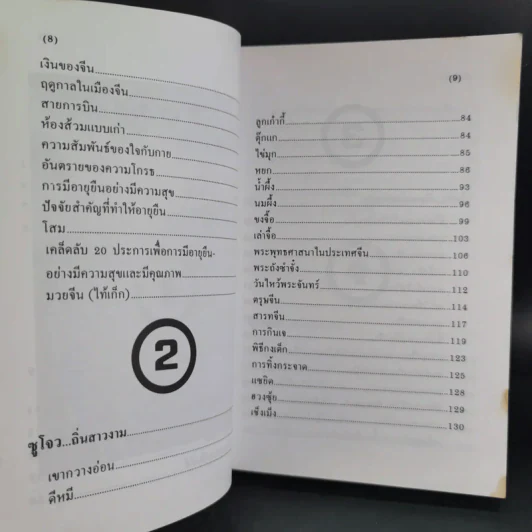 (8)
เงินของจีน
ฤดูกาลในเมืองจีน
สายการบิน
ห้องส้วมแบบเก่า
ความสัมพันธ์ของใจกับกาย
อันตรายของความโกรธ
การมีอายุยืนอย่างมีความสุข
ปัจจัยสำคัญที่ทำให้อายุยืน
โสม
เคล็ดลับ 20 ประการเพื่อการมีอายุยืน-
อย่างมีความสุขและมีคุณภาพ
มวยจีน (ไท้เก็ก)
2
ซูโจว...ถิ่นสาวงาม
เขากวางอ่อน
ดีหมี
(9)
ลูกเก๋ากี้ 84
ตุ๊กแก 84
ไข่มุก 85
หยก 86
น้ำผึ้ง 93
นมผึ้ง 96
ขงจื้อ 99
เล่าจื้อ 103
พระพุทธศาสนาในประเทศจีน 106
พระถังซำจั๋ง 110
วันไหว้พระจันทร์ 112
ตรุษจีน 114
สารทจีน 117
การกินเจ 119
พิธีกงเต็ก 123
การทิ้งกระจาด 125
แซยิด 128
ฮวงซุ้ย 129
เช็งเม้ง 130